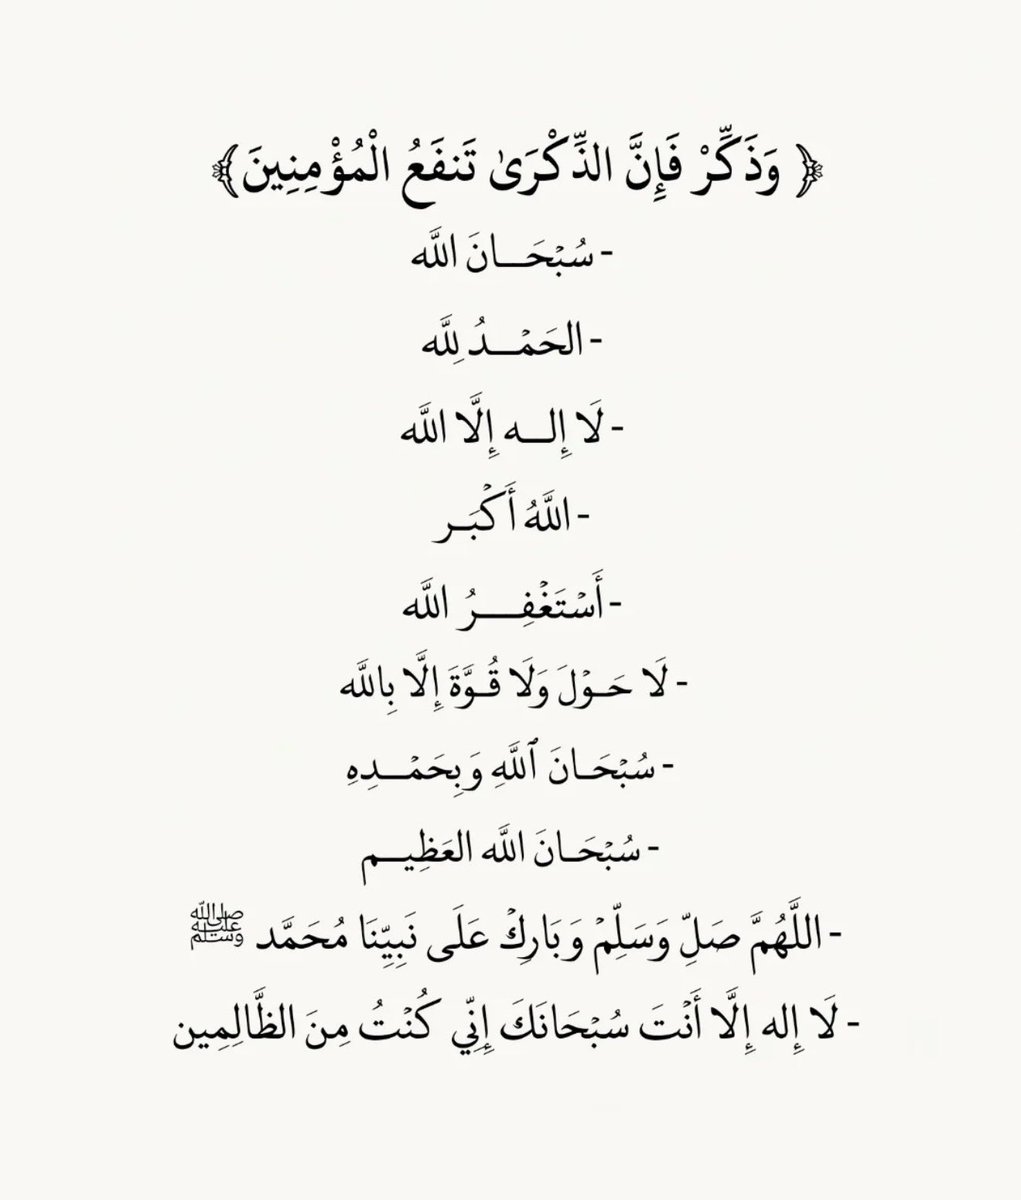 ﴿ وَذَكِّرْ فَإِنَّ الذِّكْرَىٰ تَنفَعُ الْمُؤْمِنِينَ﴾
- سُبْحَـــانَ اللَّه
- الحَمْـــدُ لِلَّه
- لَا إِلـــه إِلَّا اللَّه
- اللَّهُ أَكْبَـر
- أَسْتَغْفِـــرُ اللَّه
- لَا حَـوْلَ وَلَا قُـوَّةَ إِلَّا بِاللَّه
- سُبْحَـانَ ٱللَّهِ وَبِحَمْـــدِهِ
- سُبْحَـانَ اللَّه العَظِيــم
- اللَّهُمَّ صَلِّ وَسَلِّمْ وَبَارِكْ عَلَى نَبِيِّنَا مُحَمَّد ﷺ
- لَا إِله إِلَّا أَنْتَ سُبْحَانَكَ إِنِّي كُنْتُ مِنَ الظَّالِمِين